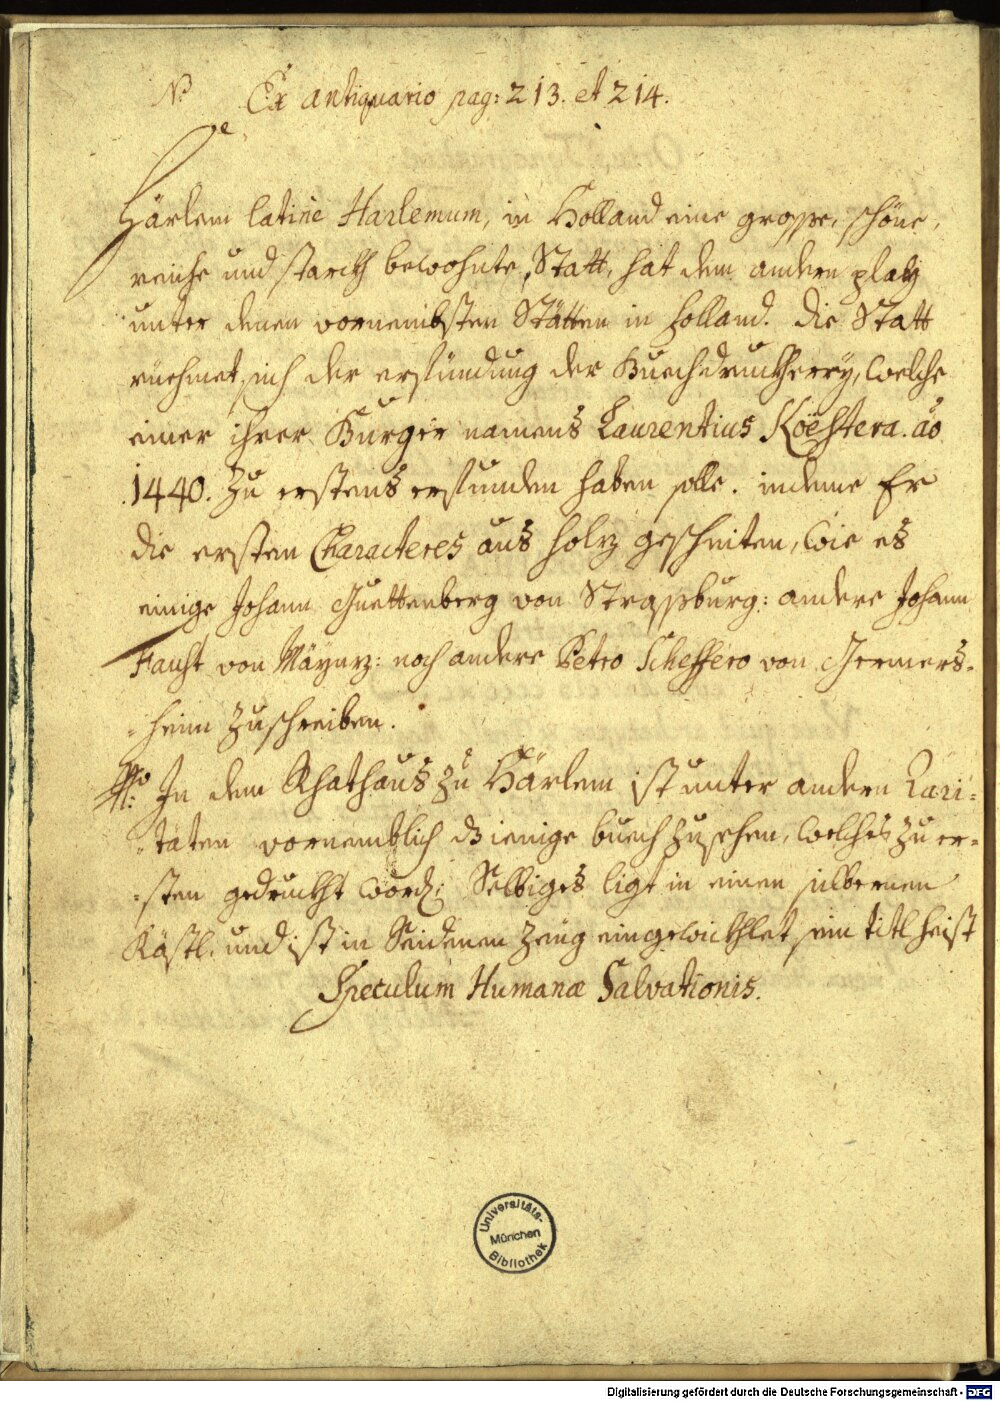 N.º Ex antiquario pag: 213. et 214.
Härlem latine Harlemum, in Holland eine grosse, schöne,
reiche und starckh bewohnte Statt, hat den andern platz
unter denen vornembsten Stätten in Holland. die Statt
rüehmet sich der erfündung der Buechdruckherey, welche
einer ihrer Burger namens Laurentius Koëstera. aō
1440. zu erstens erfunden haben solle. indeme Er
die ersten Characteres aus holz geschniten, wie es
einige Johann Guettenberg von Strassburg: andere Johann
Faust von Mäynz: noch andere Petro Scheffero von Germers-
-heim zuschreiben.
In dem Rhathaus zu Härlem ist unter andern Rari-
-taten vornemblich dienige buech zu sehen, welches zu er-
-sten gedruckht word: Selbiges ligt in einen silbernen
Kästl. und ist in Seidenen Zeug eingewickhlet, sein titl heist
Speculum Humanæ Salvationis.
Universitäts-
München
Bibliothek
Digitalisierung gefördert durch die Deutsche Forschungsgemeinschaft - DFG